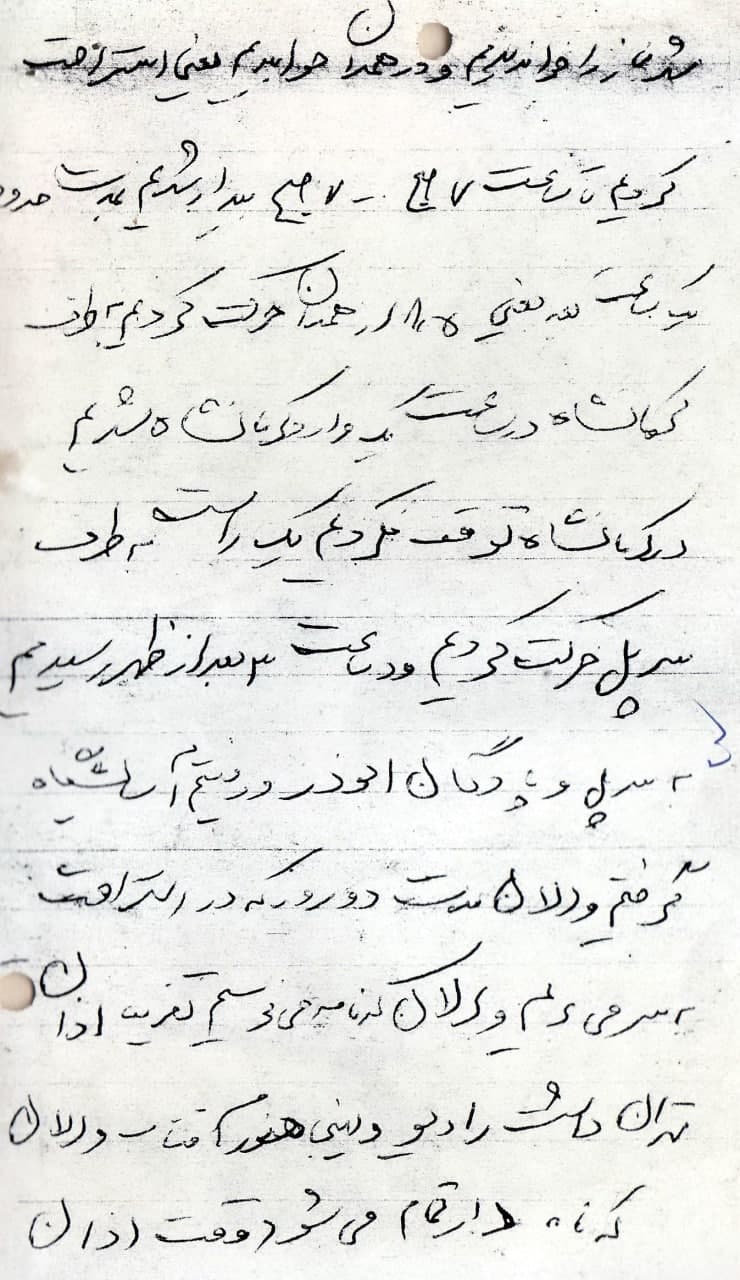 شدن نماز را خواندیم و در همدان خوابیدیم یعنی استراحت
کردیم تا ساعت ۷ صبح - ۷ صبح بیدار شدیم بمدت حدود
یک ساعت بعد یعنی ۸/۵ از همدان حرکت کردیم به طرف
کرمانشاه در ساعت یک وارد کرمانشاه شدیم
در کرمانشاه توقف نکردیم یک راست به طرف
سرپل حرکت کردیم و در ساعت ۳ بعد از ظهر رسیدیم
به سرپل و پادگان ابوذر و رفتیم آسایشگاه
گرفتیم و الان مدت دو روز که در استراحت
به سر می بریم و الان که نامه می نویسم تقریبا اذان
تهران داشت رادیو ولی هنوز آفتاب و الان
که نامه دارد تمام می شود وقت اذان